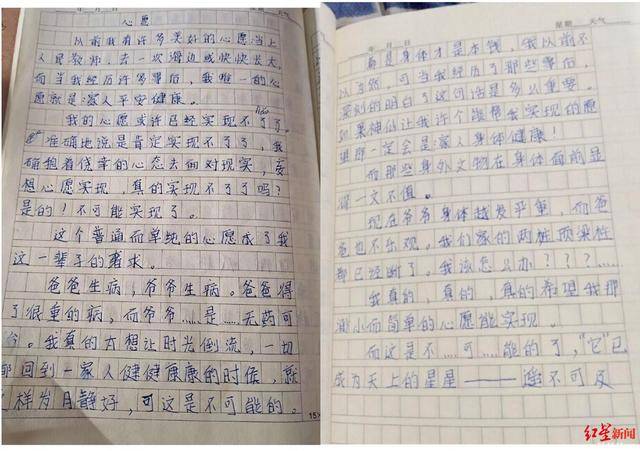 心愿
以前我有许多美好的心愿当上
人民教师,去一次海边或快快长大,
而当我经历许多事后,我唯一的心
愿就是家人平安健康。
我的心愿或许已经实现不了了。
准确地说是肯定实现不了了,我
确抱着侥幸的心态去面对现实,妄
想心愿实现,真的实现不了了吗?
是的!不可能实现了。
这个普通而单纯的心愿成了我
这一辈子的奢求。
爸爸生病,爷爷生病。爸爸得
了很重的病,而爷爷……是……无药可
。我真的太想让时光倒流,一切
都回到一家人健健康康的时侯,就
样岁月静好,可这是不可能的。
15×
年 月 日
星期 天气
身体才是本钱,我以前不
以为然,可当我经历了那些事后,
深刻的明白了这句话是多么重要。
如果神仙让我许个能帮我实现的愿
望那一定会是家人身体健康!
而那些身外文物在身体面前显
得一文不值。
现在爷爷身体越发严重,而爸
爸也不乐观。我们家的两桩顶梁柱
都已经断了。我该怎么办????……
我真的,真的,真的希望我那
渺小而简单的心愿能实现。
而这是不……可……能的了,“它”已
成为天上的星星——遥不可及
红星新闻